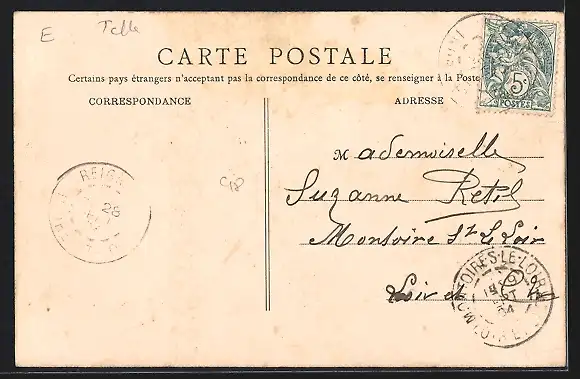 E Telle
CARTE POSTALE
Certains pays étrangers n'acceptant pas la correspondance de ce côté, se renseigner à la Poste
CORRESPONDANCE
ADRESSE
5c
POSTES
Mademoiselle
Suzanne Retil
Montoire St Le Loir
Loir et Ch
REIGN
28
MONTOIRE-S-LE-LOIR